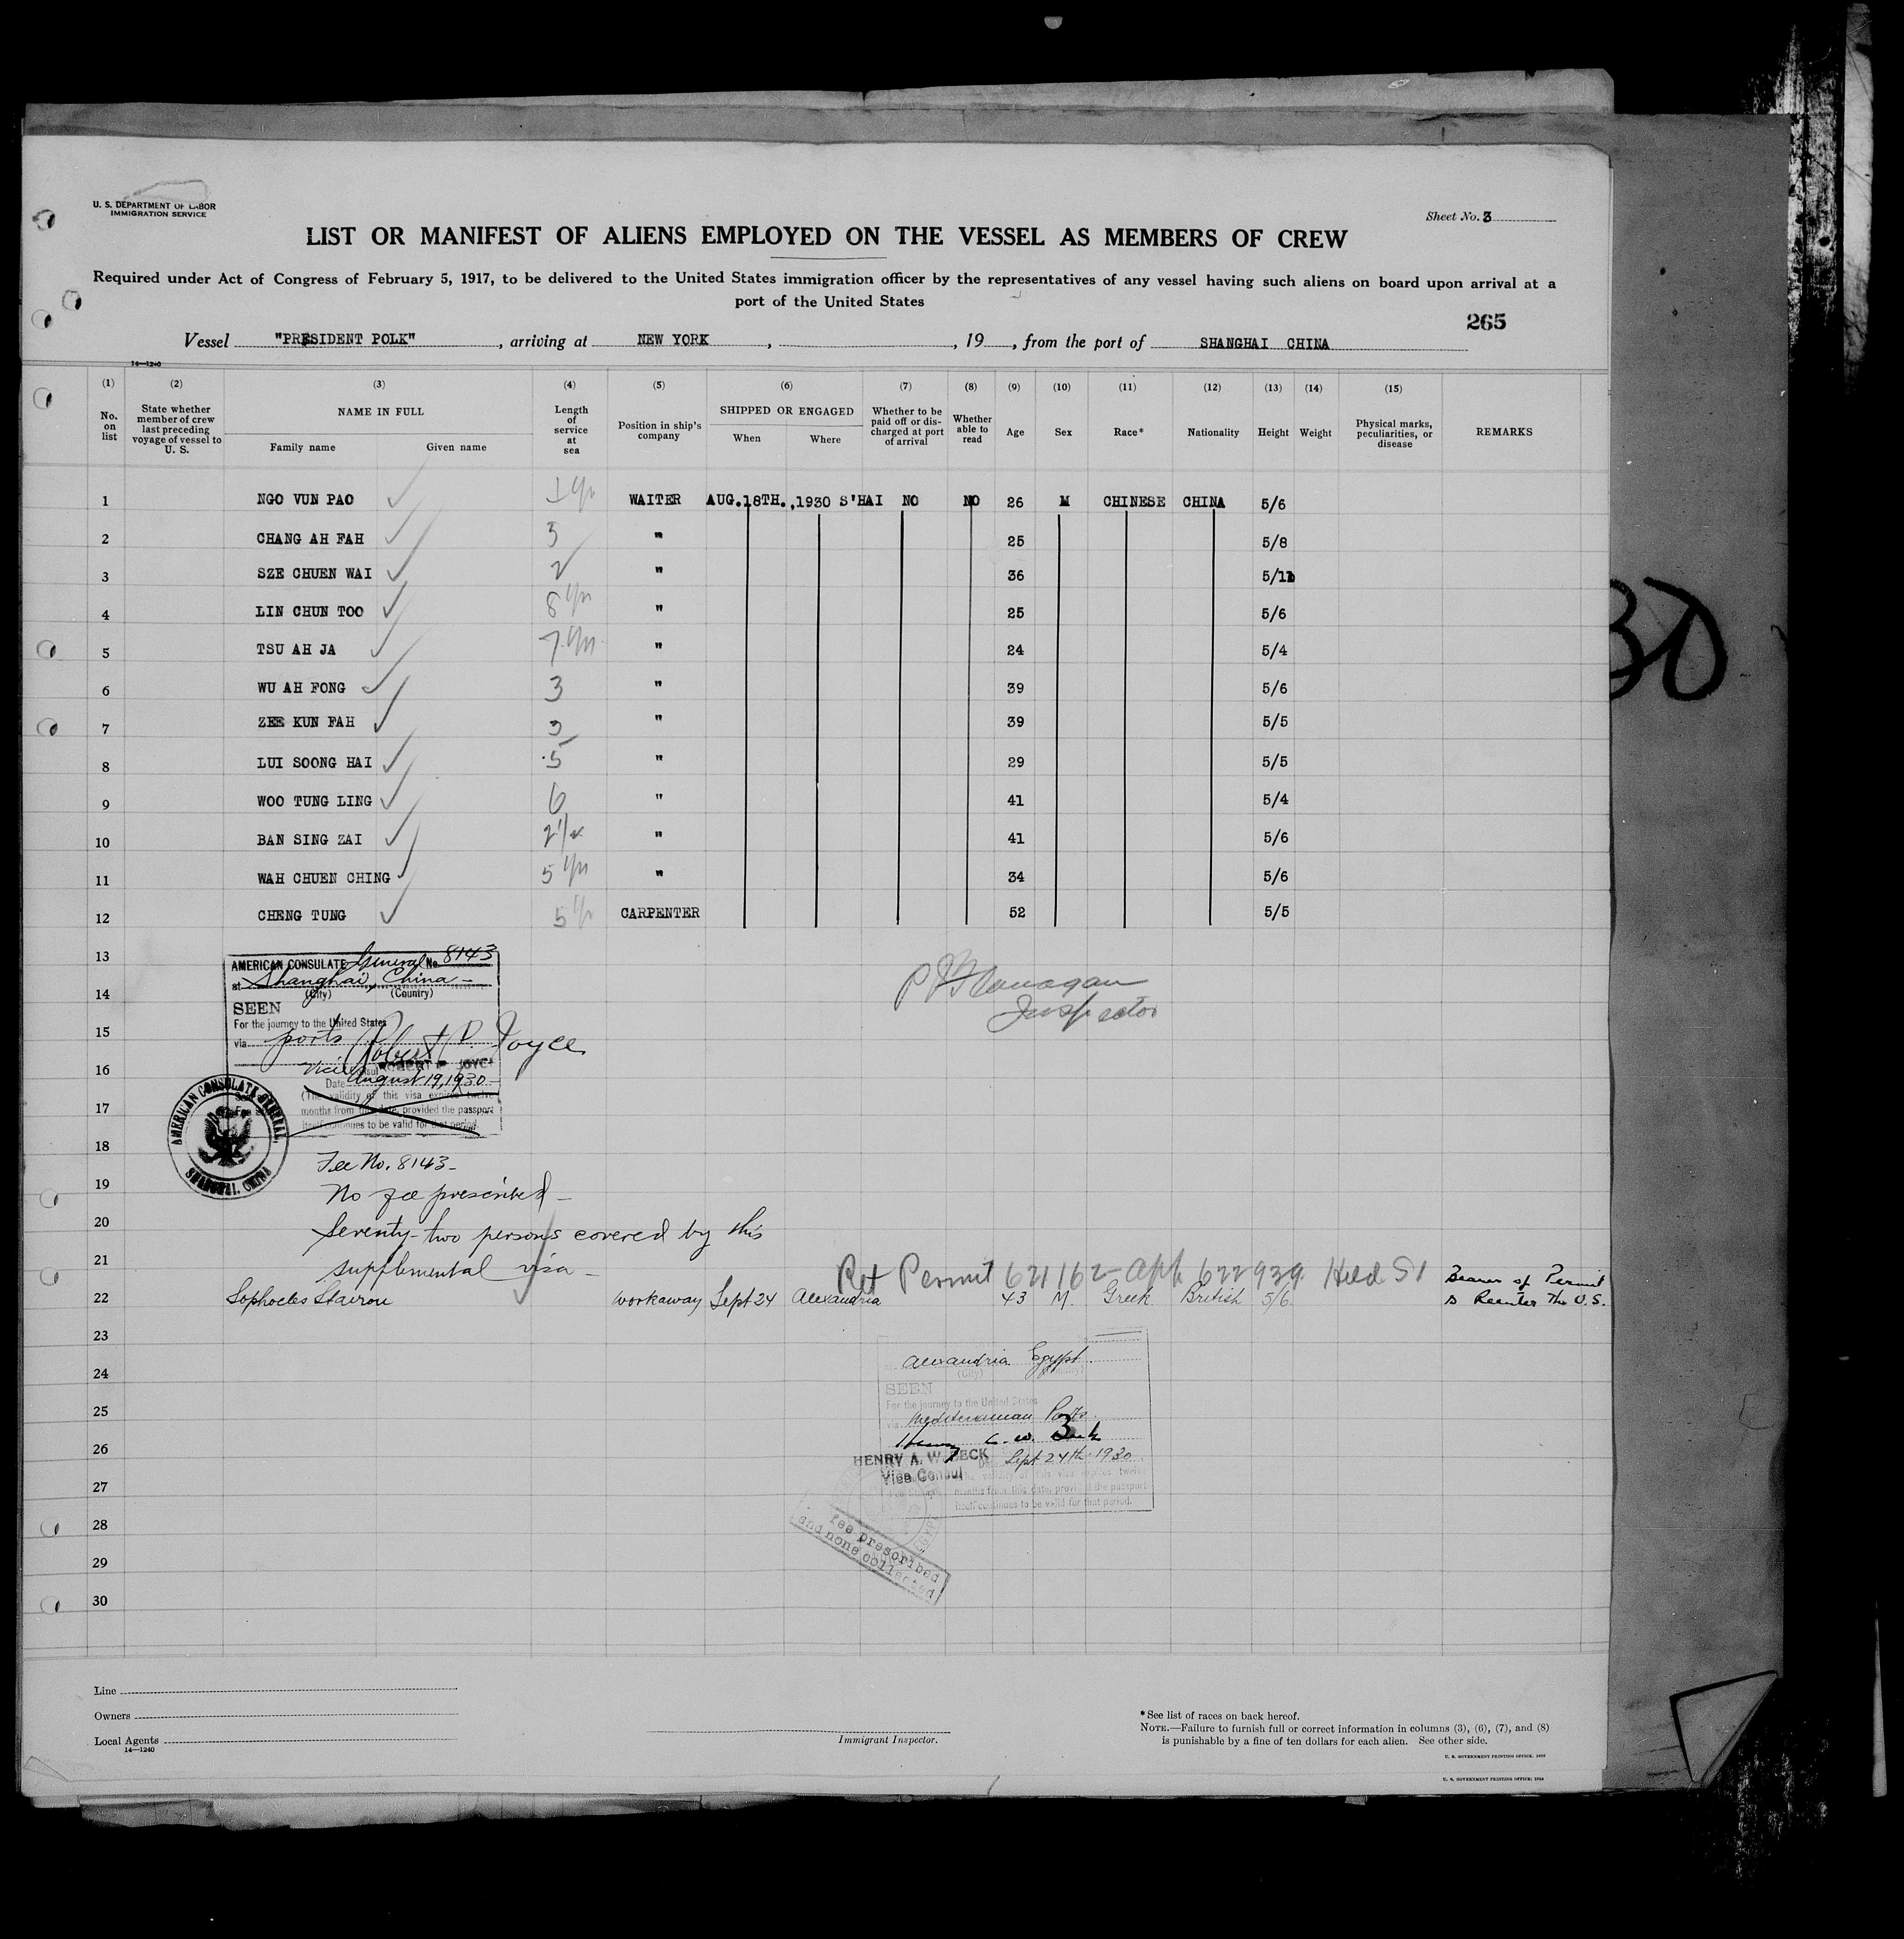 U. S. DEPARTMENT OF LABOR
IMMIGRATION SERVICE
Sheet No. 3
LIST OR MANIFEST OF ALIENS EMPLOYED ON THE VESSEL AS MEMBERS OF CREW
Required under Act of Congress of February 5, 1917, to be delivered to the United States immigration officer by the representatives of any vessel having such aliens on board upon arrival at a
port of the United States
265
Vessel "PRESIDENT POLK", arriving at NEW YORK, , 19 , from the port of SHANGHAI CHINA
14—1240
(1) (2) (3) (4) (5) (6) (7) (8) (9) (10) (11) (12) (13) (14) (15)
No. on list
State whether member of crew last preceding voyage of vessel to U. S.
NAME IN FULL
Family name Given name
Length of service at sea
Position in ship's company
SHIPPED OR ENGAGED
When Where
Whether to be paid off or discharged at port of arrival
Whether able to read
Age
Sex
Race*
Nationality
Height
Weight
Physical marks, peculiarities, or disease
REMARKS
1 NGO VUN PAO 1 yr WAITER AUG.18TH.,1930 S'HAI NO NO 26 M CHINESE CHINA 5/6
2 CHANG AH FAH 3 " 25 5/8
3 SZE CHUEN WAI 2 " 36 5/11
4 LIN CHUN TOO 8 yrs " 25 5/6
5 TSU AH JA 7 yrs " 24 5/4
6 WU AH FONG 3 " 39 5/6
7 ZEE KUN FAH 3 " 39 5/5
8 LUI SOONG HAI 5 " 29 5/5
9 WOO TUNG LING 6 " 41 5/4
10 BAN SING ZAI 2 1/2 " 41 5/6
11 WAH CHUEN CHING 5 yrs " 34 5/6
12 CHENG TUNG 5 yr CARPENTER 52 5/5
13
14
15
16
17
18
19
20
21
AMERICAN CONSULATE General No. 8143
at Shanghai, China
(City) (Country)
SEEN
For the journey to the United States
via ports
Robert P. Joyce
Vice Consul ROBERT P. JOYCE
Date August 19, 1930
(The validity of this visa expires twelve
months from this date, provided the passport
itself continues to be valid for that period.
AMERICAN CONSULATE GENERAL,
SHANGHAI, CHINA
Inspector
Fee No. 8143-
No fee prescribed-
Seventy-two persons covered by this
supplemental visa-
Ret Permit 621162- app. 622939. Held SI
Bearer of Permit
to Reenter the U.S.
22 Sophocles Stavrou workaway Sept 24 Alexandria 43 M. Greek British 5/6
23
24
25
26
27
28
29
30
Alexandria Egypt.
(City)
SEEN
For the journey to the United States
via Mediterranean Ports
3
HENRY A. W. BECK
Vice Consul
Date Sept 24th 1930
The validity of this visa expires twelve
months from this date, provided the passport
itself continues to be valid for that period.
fee prescribed
and none collected
Line
Owners
Local Agents
14—1240
Immigrant Inspector.
* See list of races on back hereof.
NOTE.—Failure to furnish full or correct information in columns (3), (6), (7), and (8)
is punishable by a fine of ten dollars for each alien. See other side.
U. S. GOVERNMENT PRINTING OFFICE
U. S. GOVERNMENT PRINTING OFFICE
30